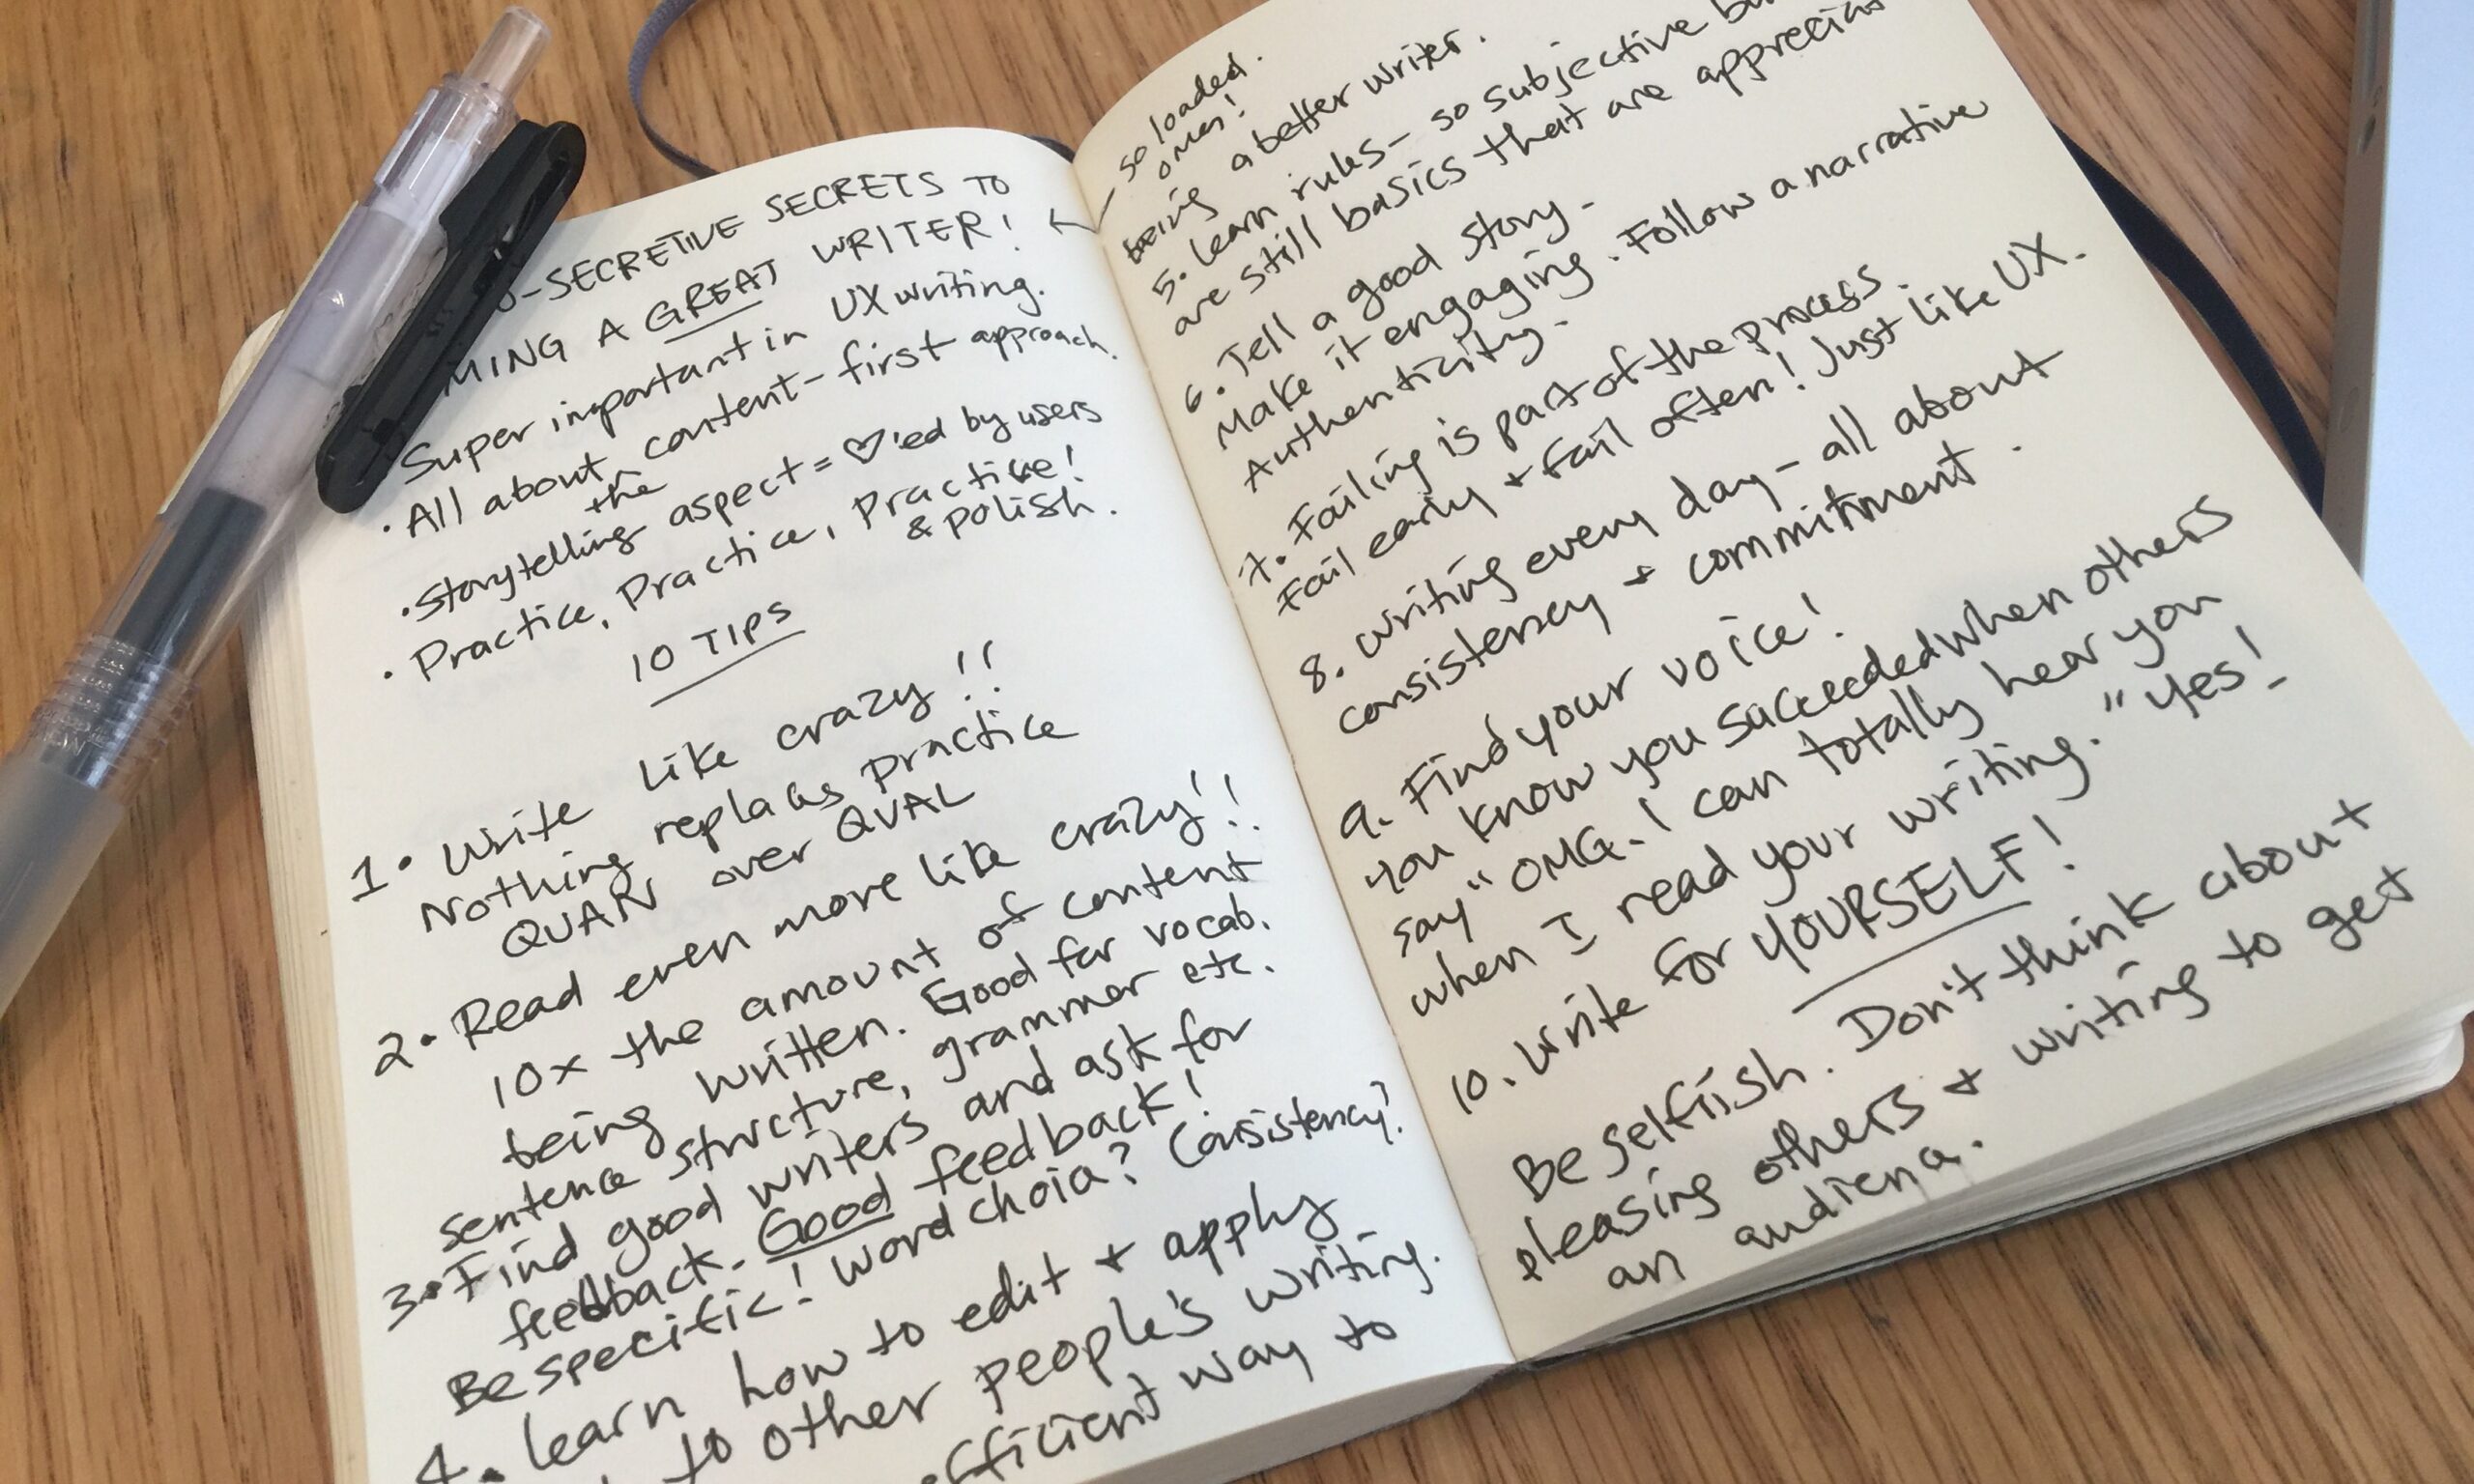 -SECRETIVE SECRETS TO
MING A GREAT WRITER!
Super important in UX writing.
• All about the content-first approach.
• Storytelling aspect = ♡'ed by users
• Practice, Practice, Practice!
& polish.
10 TIPS
1. Write like crazy!!
Nothing replaces practice
QUAN over QUAL
2. Read even more like crazy!!
10x the amount of content
being written. Good for vocab.
sentence structure, grammar etc.
3. Find good writers and ask for
feedback. Good feedback!
Be specific! Word choice? Consistency?
4. Learn how to edit + apply
to other people's writing.
efficient way to
so loaded.
omg!
being a better writer.
5. Learn rules - so subjective
are still basics that are
6. Tell a good story.
Make it engaging. Follow a narrative
Authenticity.
7. Failing is part of the process.
Fail early + fail often! Just like UX.
8. Writing every day - all about
consistency + commitment.
9. Find your voice!
You know you succeeded when others
say "OMG. I can totally hear you
when I read your writing." Yes!
10. Write for YOURSELF!
Be selfish. Don't think about
pleasing others + writing to get
an audience.